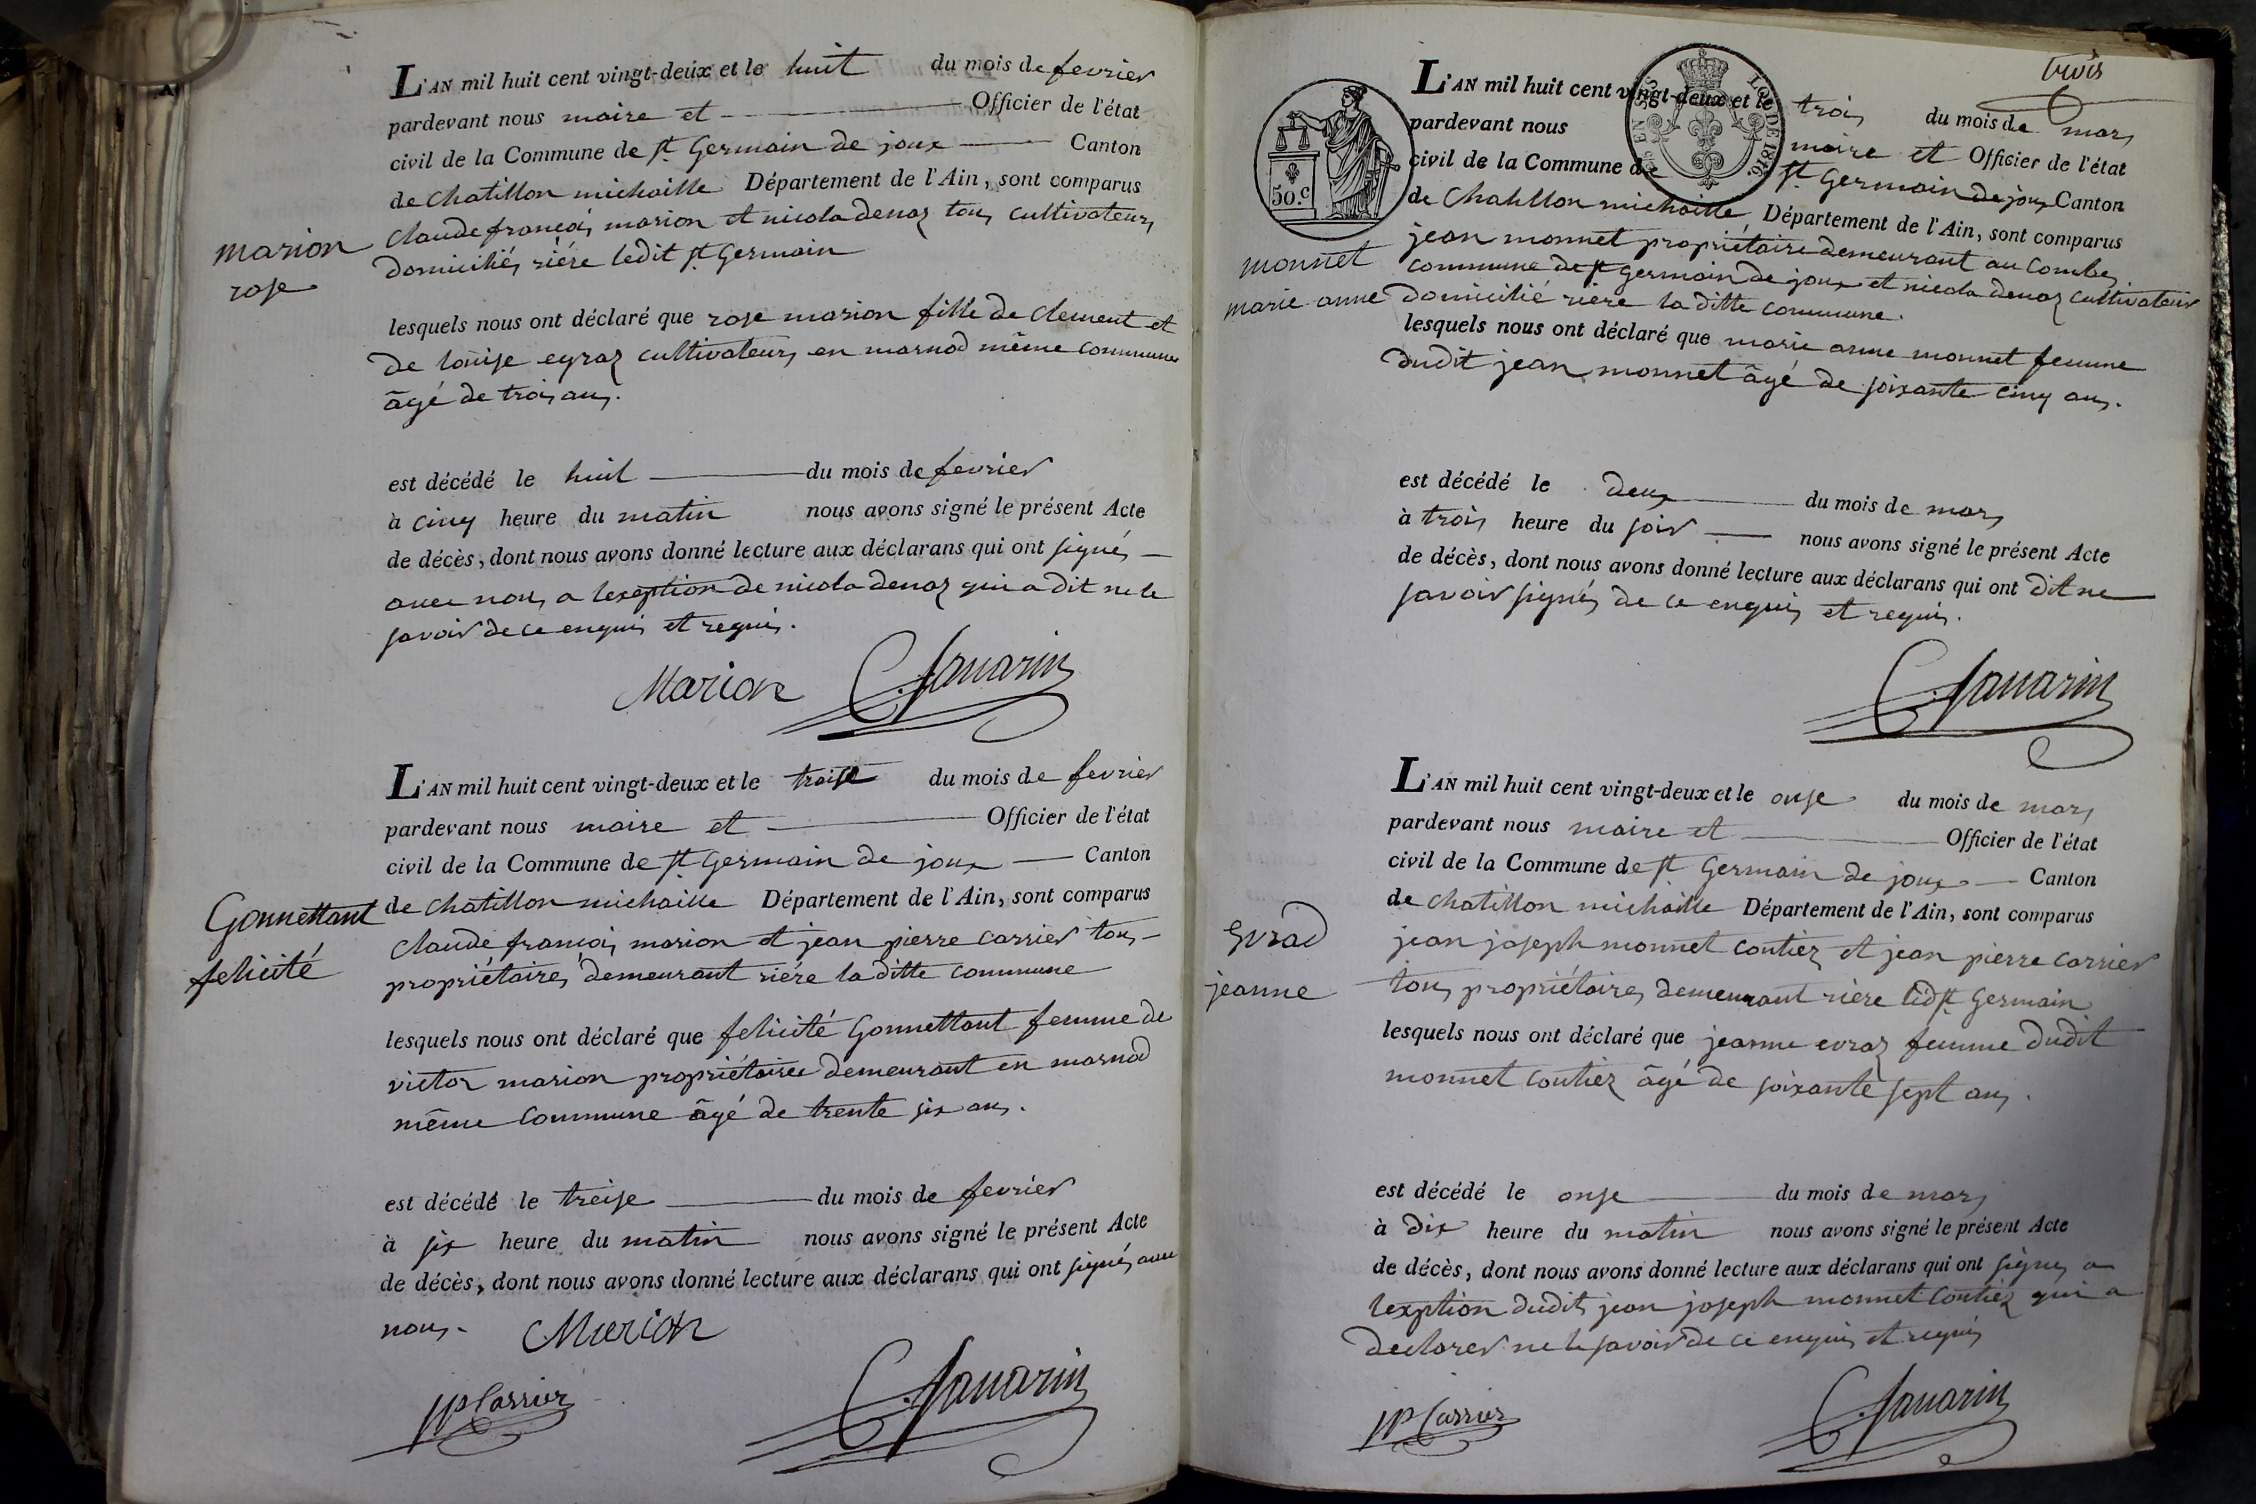 L'AN mil huit cent vingt-deux et le huit du mois de fevrier
pardevant nous maire et Officier de l'état
civil de la Commune de st Germain de joux Canton
de chatillon michaille Département de l'Ain, sont comparus
claude françois marion et nicola denaz tous cultivateurs
domiciliés riére ledit st Germain
marion
rose
lesquels nous ont déclaré que rose marion fille de clement et
de louise eyraz cultivateurs en marnod même commune
âgé de trois ans.
est décédé le huit du mois de fevrier
à cinq heure du matin nous avons signé le présent Acte
de décès, dont nous avons donné lecture aux déclarans qui ont signés
avec nous a lexeption de nicola denaz qui a dit ne le
savoir de ce enquis et requis.
Marion C. Savarin
L'AN mil huit cent vingt-deux et le treise du mois de fevrier
pardevant nous maire et Officier de l'état
civil de la Commune de st Germain de joux Canton
de chatillon michaille Département de l'Ain, sont comparus
claude françois marion et jean pierre carrier tous
propriétaires demeurant riére la ditte commune
Gonnettant
felicité
lesquels nous ont déclaré que felicité Gonnettant femme de
victor marion propriétairee demeurant en marnod
même commune âgé de trente six ans.
est décédé le treise du mois de fevrier
à six heure du matin nous avons signé le présent Acte
de décès, dont nous avons donné lecture aux déclarans qui ont signés avec
nous.
Marion
JP Carrier C. Savarin
trois
L'AN mil huit cent vingt-deux et le trois du mois de mars
pardevant nous maire et Officier de l'état
civil de la Commune de st Germain de joux Canton
de Chatillon michaille Département de l'Ain, sont comparus
50.c
LOI DE 1816.
jean monnet propriétaire demeurant au combes
commune de st germain de joux et nicola denaz cultivateur
domicilié riére la ditte commune.
monnet
marie anne
lesquels nous ont déclaré que marie anne monnet femme
dudit jean monnet âgé de soixante cinq ans.
est décédé le deux du mois de mars
à trois heure du soir nous avons signé le présent Acte
de décès, dont nous avons donné lecture aux déclarans qui ont dit ne
savoir signés de ce enquis et requis.
C. Savarin
L'AN mil huit cent vingt-deux et le onse du mois de mars
pardevant nous maire et Officier de l'état
civil de la Commune de st Germain de joux Canton
de chatillon michaille Département de l'Ain, sont comparus
jean joseph monnet contiez et jean pierre carrier
tous propriétaires demeurant riére ledt st Germain
jeanne
lesquels nous ont déclaré que jeanne evraz femme dudit
monnet contiez âgé de soixante sept ans.
est décédé le onse du mois de mars
à dix heure du matin nous avons signé le présent Acte
de décès, dont nous avons donné lecture aux déclarans qui ont signes a
lexption dudit jean joseph monnet contiez qui a
declarer ne le savoir de ce enquis et requis
JP Carrier C. Savarin